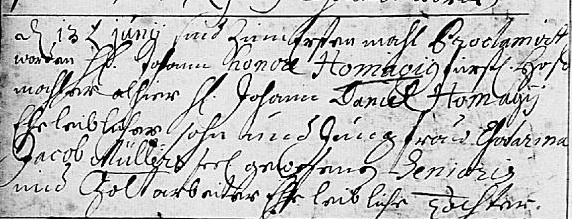 d 13 t Junij sind zum ersten mahl Proclamirt
worden H. Johann Honore Homagig fürstl. Hoff
machter alhier H. Johann Daniel Homagij
Eheleiblicher sohn und Jungfrau Catarina
Jacob Müllers seel gewesenen Senioris
und Zoltarbeiter Eheleibliche Tochter.